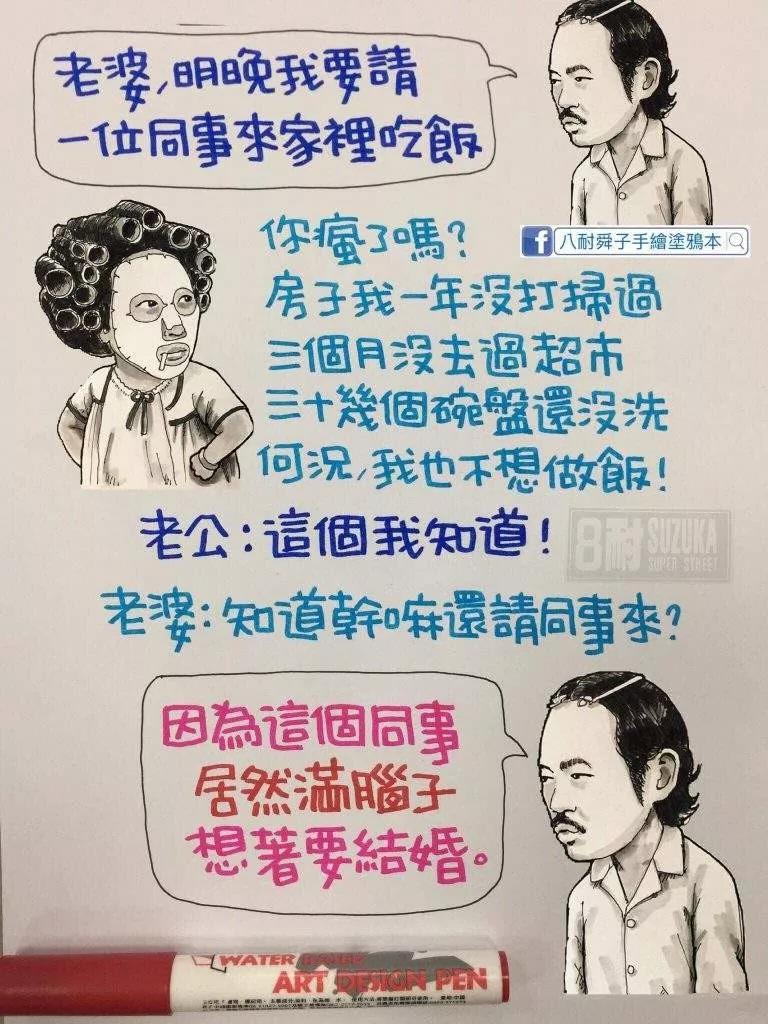 老婆,明晚我要請
一位同事來家裡吃飯
八耐舜子手繪塗鴉本
你瘋了嗎?
房子我一年沒打掃過
三個月沒去過超市
三十幾個碗盤還沒洗
何況,我也不想做飯!
老公:這個我知道!
8耐 SUZUKA
SUPER STREET
老婆:知道幹嘛還請同事來?
因為這個同事
居然滿腦子
想著要結婚。
WATER
ART DESIGN PEN